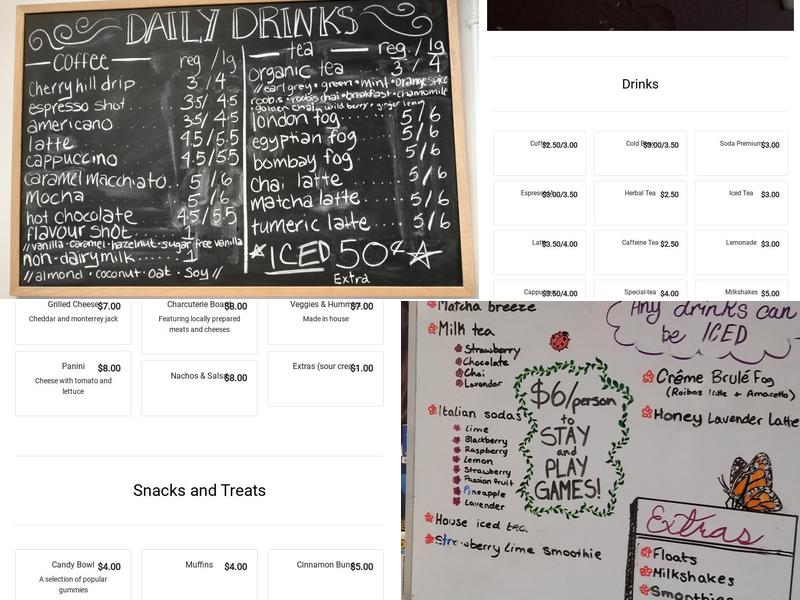 DAILY DRINKS
coffee reg / lg
cherry hill drip 3 / 4
espresso shot 3.5/ 4.5
americano 3.5/ 4.5
latte 4.5/5.5
cappuccino 4.5/5.5
caramel macchiato 5 / 6
mocha 5 / 6
hot chocolate 4.5/5.5
flavour shot 1
//vanilla·caramel·hazelnut·sugar free vanilla
non-dairy milk 1
//almond · coconut · oat · soy//
tea reg. / lg
organic tea 3 / 4
//earl grey · green · mint · orange spice
rooibos · rooibos chai · breakfast · chamomile
golden chai · wild berry · ginger lemon
london fog 5/6
egyptian fog 5/6
bombay fog 5/6
chai latte 5/6
matcha latte 5/6
tumeric latte 5/6
ICED 50¢
Extra
Drinks
Coffee $2.50/3.00
Cold $3.00/3.50
Soda Premium $3.00
Espresso $3.00/3.50
Herbal Tea $2.50
Iced Tea $3.00
Latte $3.50/4.00
Caffeine Tea $2.50
Lemonade $3.00
Cappuccino $3.50/4.00
Special-tea $4.00
Milkshakes $5.00
Grilled Cheese $7.00
Cheddar and monterrey jack
Charcuterie Board $8.00
Featuring locally prepared
meats and cheeses
Veggies & Hummus $7.00
Made in house
Panini $8.00
Cheese with tomato and
lettuce
Nachos & Salsa $8.00
Extras (sour cream $1.00
Snacks and Treats
Candy Bowl $4.00
A selection of popular
gummies
Muffins $4.00
Cinnamon Buns $5.00
Matcha breeze
Milk tea
Strawberry
Chocolate
Chai
Lavender
Italian sodas
Lime
Blackberry
Raspberry
Lemon
Strawberry
Passion fruit
Pineapple
Lavender
House iced tea
Strawberry Lime Smoothie
$6/person
to
STAY
and
PLAY
GAMES!
Any drinks can
be ICED
Créme Brulé Fog
(Roibos latte + Amaretto)
Honey Lavender Latte
Extras
Floats
Milkshakes
Smoothies